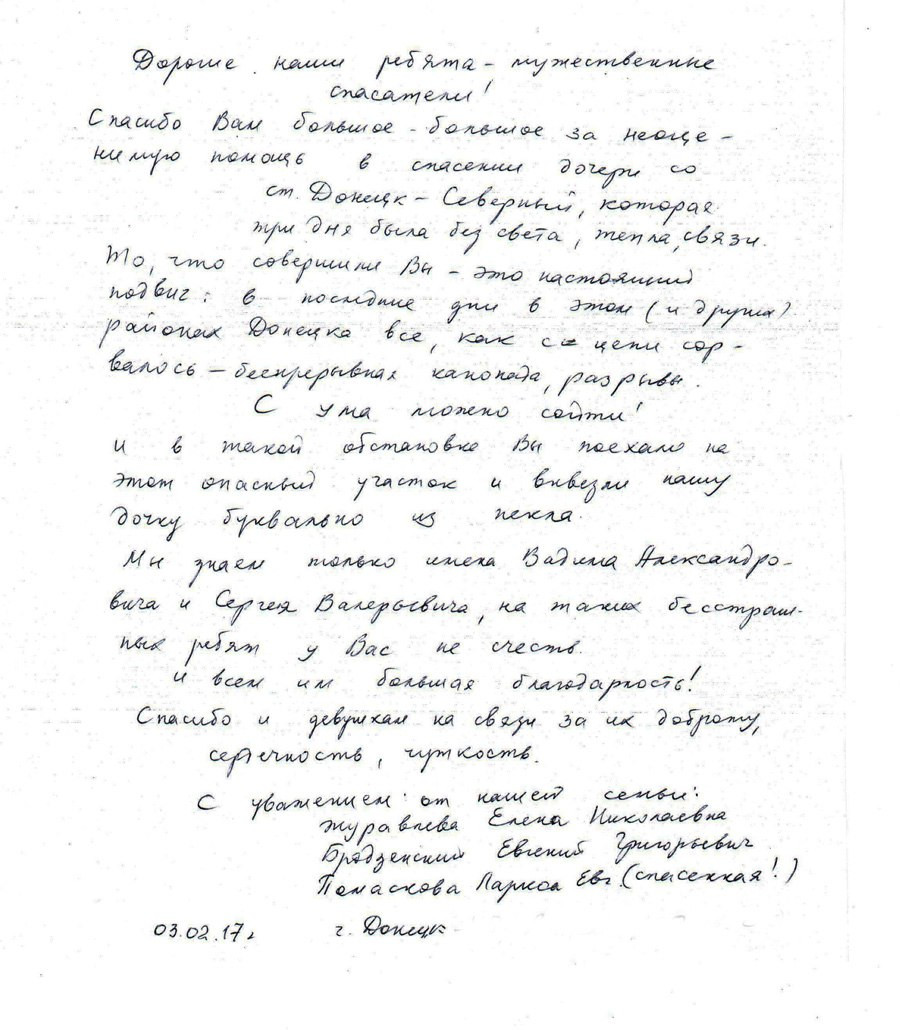 Дорогие наши ребята - мужественные
спасатели!
Спасибо Вам большое - большое за неоце-
нимую помощь в спасении дочери со
ст. Донецк - Северный, которая
три дня была без света, тепла, связи.
То, что совершили Вы - это настоящий
подвиг: в последние дни в этом (и других)
районах Донецка все, как с цепи сор-
валось - беспрерывная канонада, разрывы.
С ума можно сойти!
И в такой обстановке Вы поехали на
этот опасный участок и вывезли нашу
дочку буквально из пекла.
Мы знаем только имена Вадима Александро-
вича и Сергея Валерьевича, но таких бесстраш-
ных ребят у Вас не счесть.
И всем им большая благодарность!
Спасибо и девушкам на связи за их доброту,
сердечность, чуткость.
С уважением от нашей семьи:
Журавлева Елена Николаевна
Бродзенский Евгений Григорьевич
Лариса Евг. (спасенная!)
03.02.17г г. Донецк